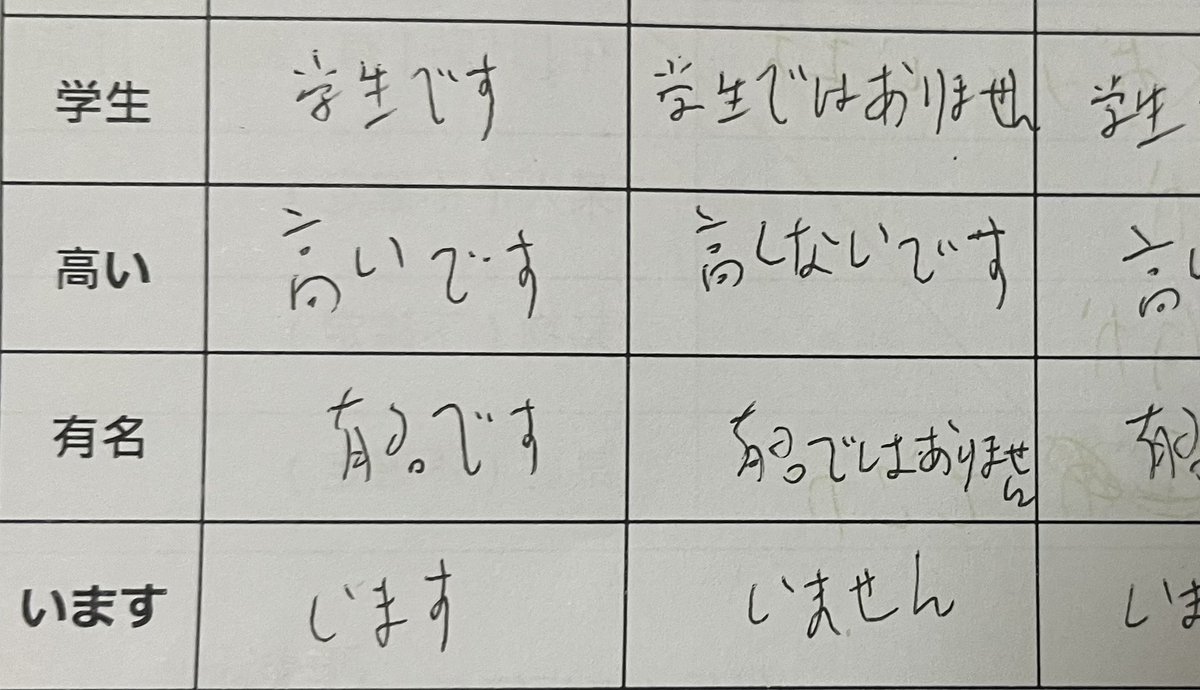 学生 学生です 学生ではありません 学生
高い 高いです 高くないです 高
有名 有名です 有名ではありません 有名
います います いません いま